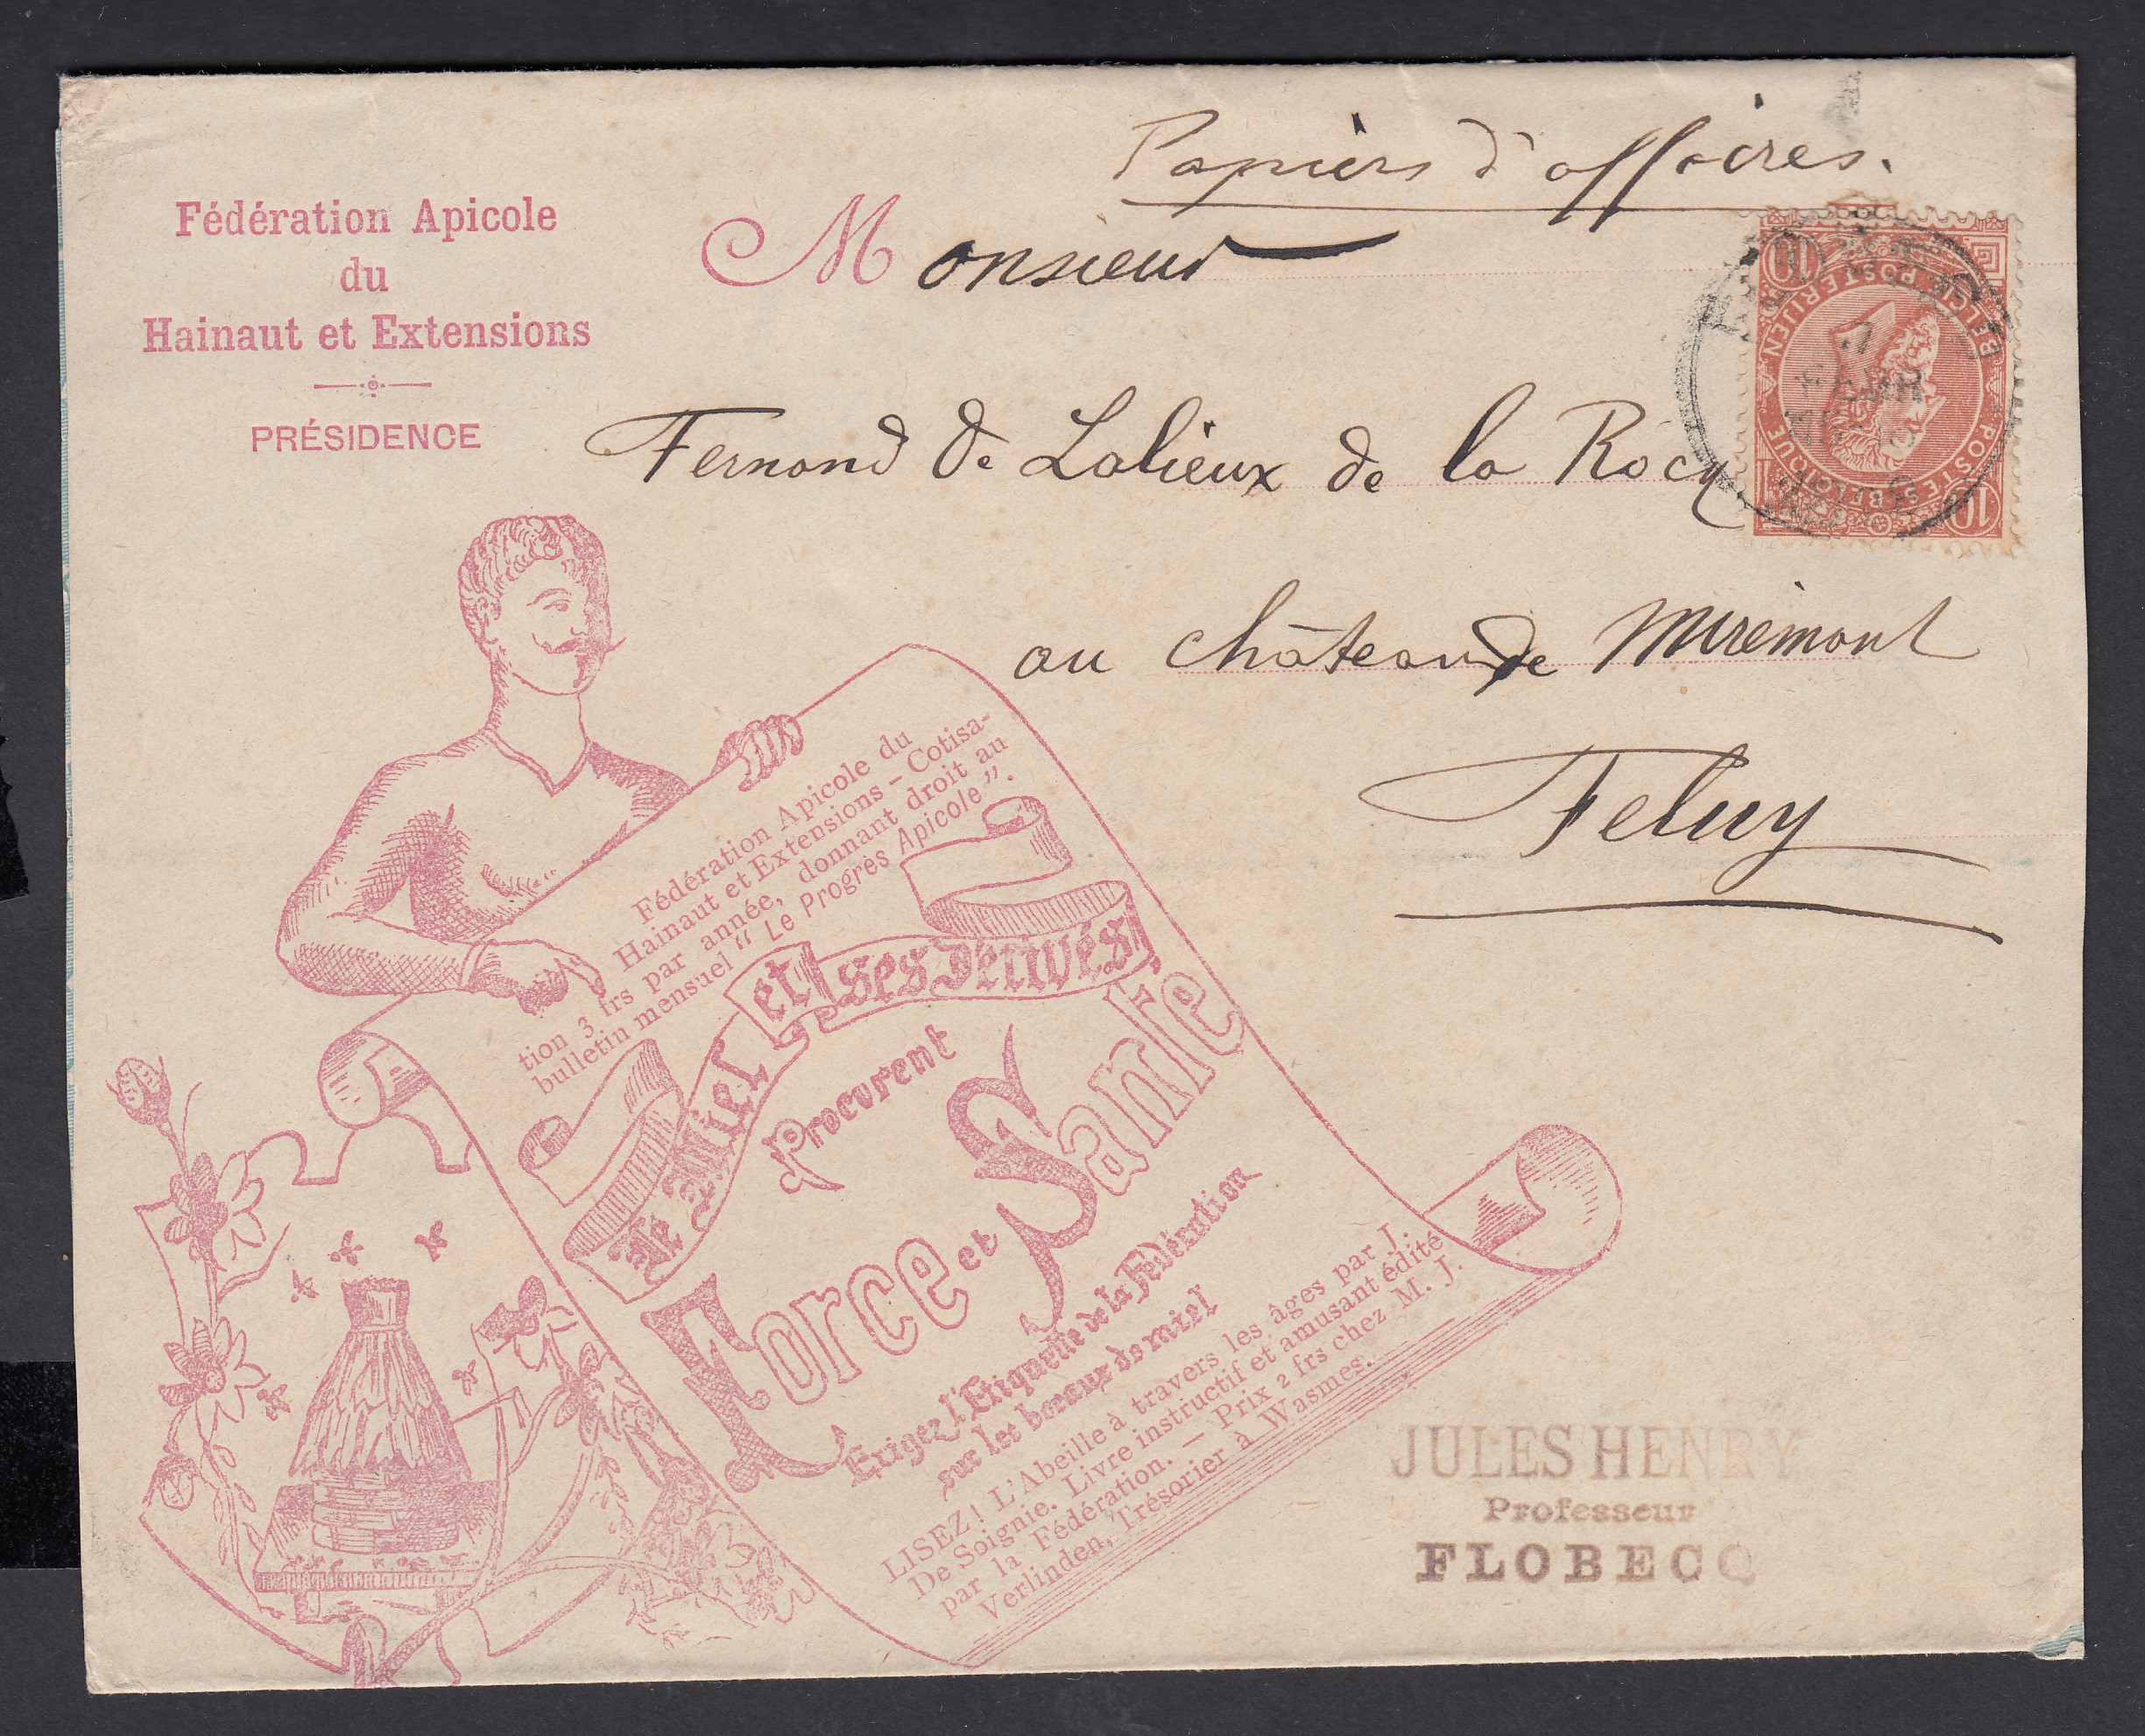 Papiers d'affaires.
Fédération Apicole
du
Hainaut et Extensions
PRÉSIDENCE
Monsieur
Fernand de Lalieux de la Rocq
au château de Miremont
Feluy
10
BELGIE POSTERIJEN
POSTES BELGIQUE
10
7
FEVR
Fédération Apicole du
Hainaut et Extensions – Cotisa-
tion 3 frs par année, donnant droit au
bulletin mensuel “ Le Progrès Apicole ”.
Le Miel et ses Dérivés
Procurent
Force et Santé
Exigez l'Etiquette de la Fédération
sur les bocaux de miel
LISEZ ! L'Abeille à travers les âges par J.
De Soignie. Livre instructif et amusant édité
par la Fédération. — Prix 2 frs chez M. J.
Verlinden, Trésorier à Wasmes.
JULES HENRY
Professeur
FLOBECQ